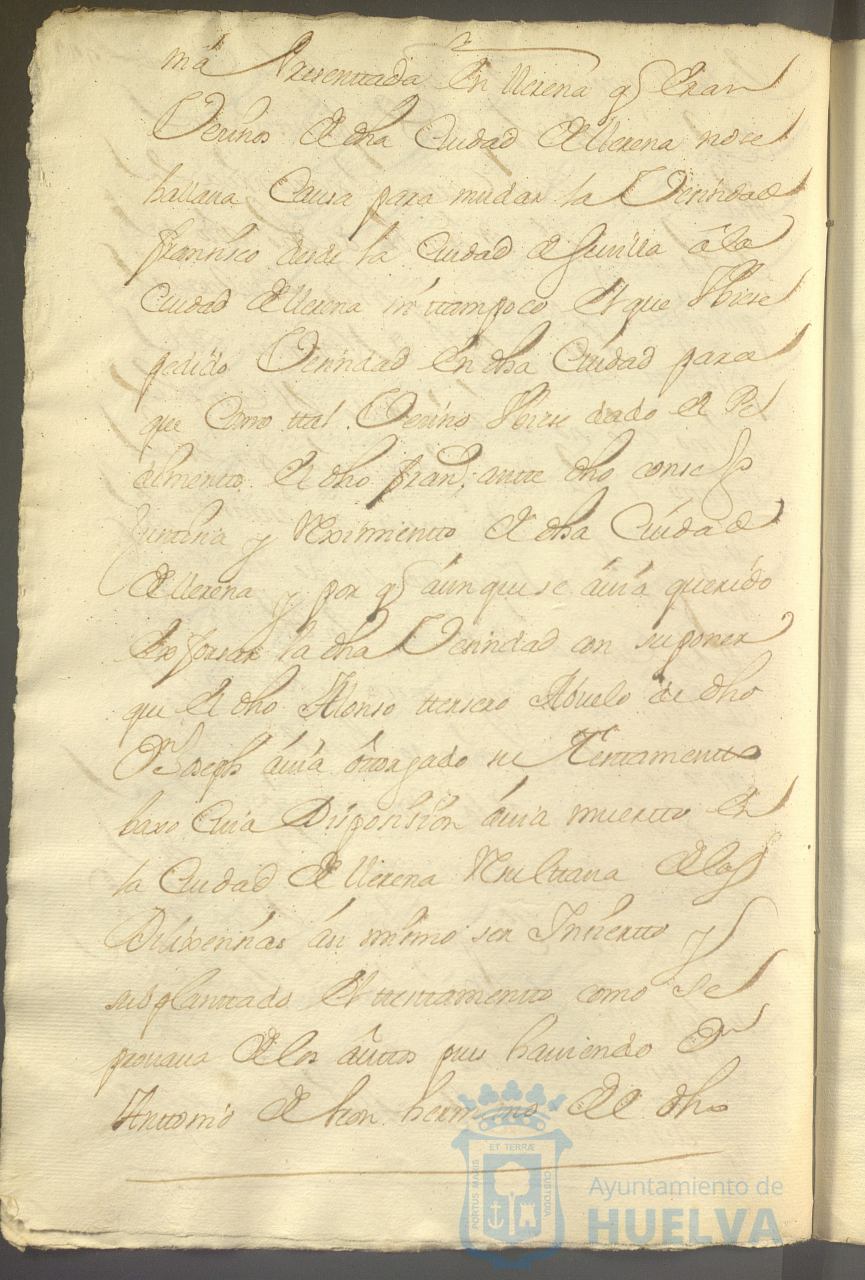 ma Presenttada En llerena q̃ Eran
Vecinos de dha Ciudad de llerena no se
hallava Causa para mudar la Vecindad
franzisco desde la Ciudad de Sevilla â la
Ciudad de llerena ni ttampoco el que Vbiese
pedido Vecindad En dha Ciudad para
que Como ttal Vecino Vbiese dado el Pe
dimento el dho fran.co antte dho consejo
Justticia y Reximientto de dha Ciudad
de llerena y por q̃ áunque se ávía querído
Esforsar la dha Vecindad con suponer
que el dho Alonso ttersero Abuelo de dho
Dn Joseph ávía ôttorgado su Testtamentto
baxo Cuia Disposisíón ávia muertto En
la Ciudad de llerena Resulttava de las
Dilixencias ásí mísmo ser Incíertto y
suplanttado el testtamentto como se
provava de los áuttos pues haviendo Dn
Anttonio de leon hermano del dho
ET TERRÆ
PORTUS MARIS
CUSTODIA
Ayuntamiento de
HUELVA